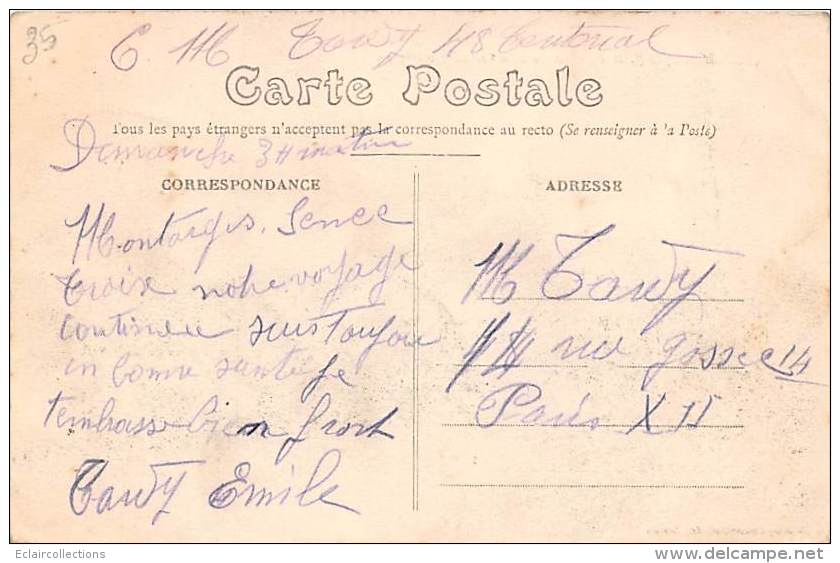 35
C. M Tardy 48 Tentorial
Carte Postale
Tous les pays étrangers n'acceptent pas la correspondance au recto (Se renseigner à 'a Poste)
Demanche 3 H matin
CORRESPONDANCE
ADRESSE
Montargis. Sence
troix notre voyage
continue suis toujour
en bonne santé je
tembrasse bien frort
Tardy Emile
M Tardy
14 rue gossec 14
Paris X II
Eclaircollections
www.delcampe.net